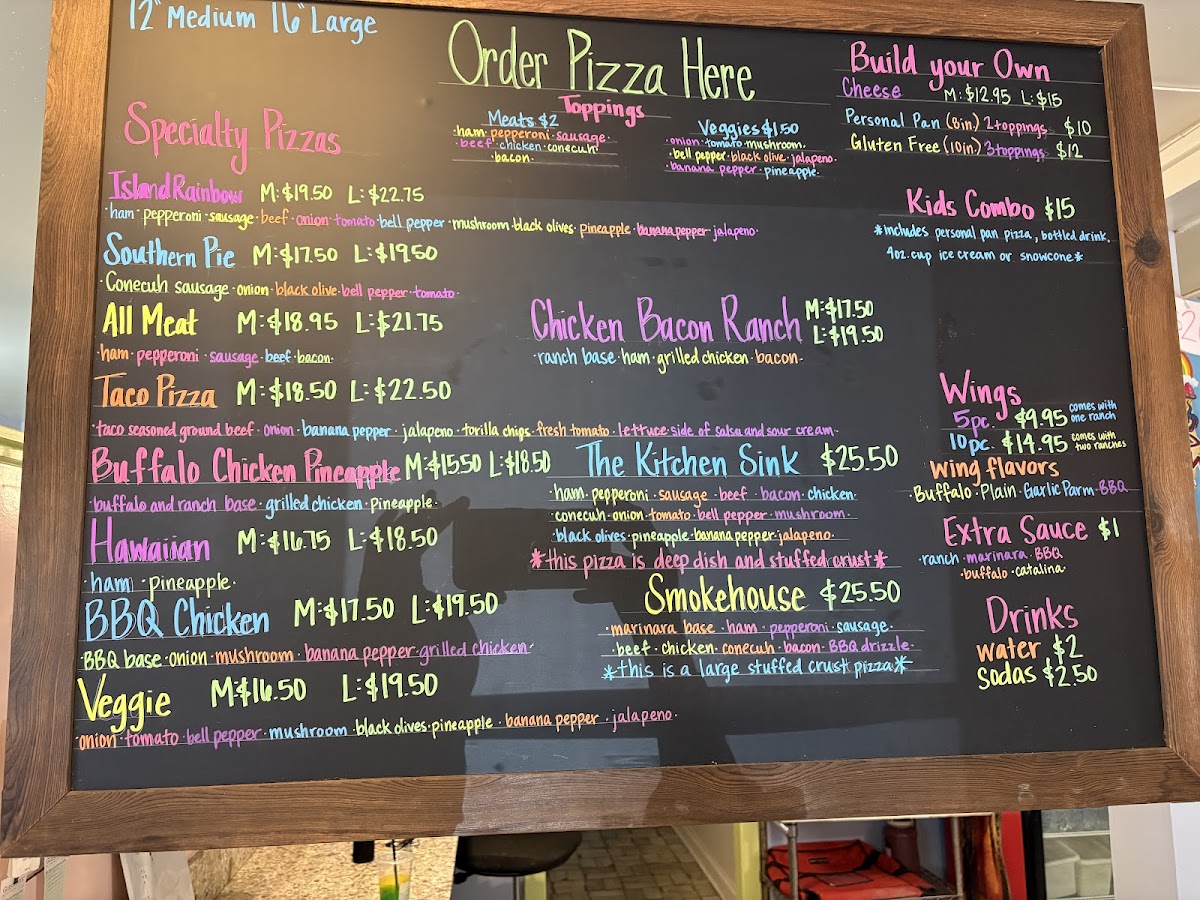 12" Medium 16" Large
Order Pizza Here
Toppings
Meats $2
ham · pepperoni · sausage ·
beef · chicken · conecuh ·
· bacon ·
Veggies $1.50
· onion · tomato · mushroom ·
· bell pepper · black olive · jalapeno ·
banana pepper · pineapple ·
Build your Own
Cheese M:$12.95 L:$15
Personal Pan (8in.) 2 toppings $10
Gluten Free (10in.) 3 toppings $12
Kids Combo $15
*includes personal pan pizza, bottled drink,
4oz. cup ice cream or snowcone*
Specialty Pizzas
Island Rainbow M:$19.50 L:$22.75
· ham · pepperoni · sausage · beef · onion · tomato · bell pepper · mushroom · black olives · pineapple · banana pepper · jalapeno ·
Southern Pie M:$17.50 L:$19.50
· Conecuh sausage · onion · black olive · bell pepper · tomato ·
All Meat M:$18.95 L:$21.75
· ham · pepperoni · sausage · beef · bacon ·
Taco Pizza M:$18.50 L:$22.50
· taco seasoned ground beef · onion · banana pepper · jalapeno · torilla chips · fresh tomato · lettuce · side of salsa and sour cream ·
Buffalo Chicken Pineapple M:$15.50 L:$18.50
· buffalo and ranch base · grilled chicken · pineapple ·
Hawaiian M:$16.75 L:$18.50
· ham · pineapple ·
BBQ Chicken M:$17.50 L:$19.50
· BBQ base · onion · mushroom · banana pepper · grilled chicken ·
Veggie M:$16.50 L:$19.50
· onion · tomato · bell pepper · mushroom · black olives · pineapple · banana pepper · jalapeno ·
Chicken Bacon Ranch M:$17.50
L:$19.50
· ranch base · ham · grilled chicken · bacon ·
The Kitchen Sink $25.50
· ham · pepperoni · sausage · beef · bacon · chicken ·
· conecuh · onion · tomato · bell pepper · mushroom ·
· black olives · pineapple · banana pepper · jalapeno ·
*this pizza is deep dish and stuffed crust*
Smokehouse $25.50
· marinara base · ham · pepperoni · sausage ·
· beef · chicken · conecuh · bacon · BBQ drizzle ·
*this is a large stuffed crust pizza*
Wings
5pc. $9.95 comes with one ranch
10pc. $14.95 comes with two ranches
Wing flavors
· Buffalo · Plain · Garlic Parm · BBQ
Extra Sauce $1
· ranch · marinara · BBQ
· buffalo · catalina ·
Drinks
water $2
Sodas $2.50